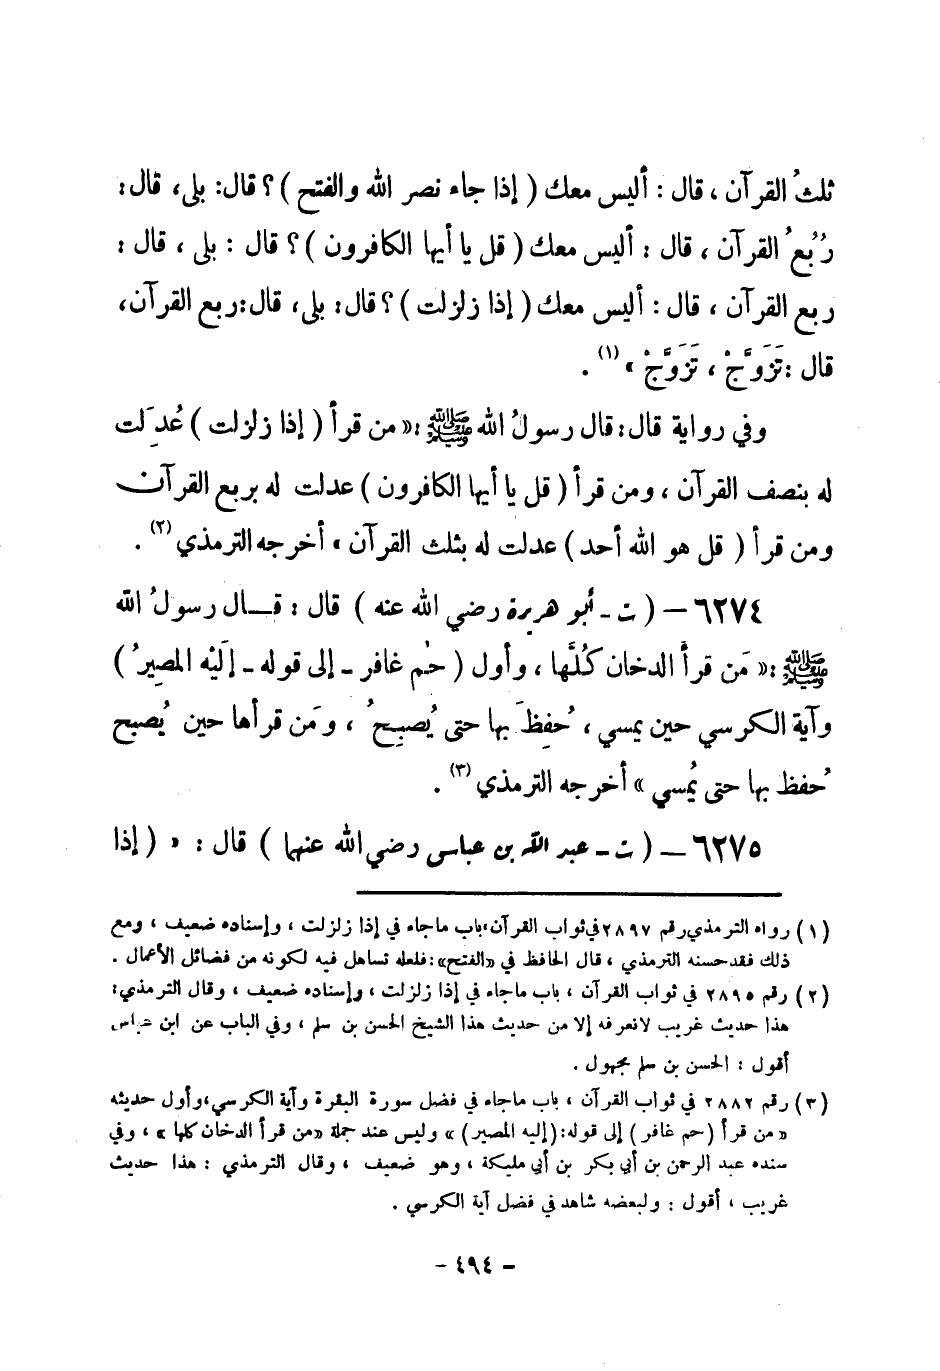 ثلثُ القرآن ، قال : أليس معك ( إذا جاء نصر الله والفتح ) ؟ قال: بلى، قال:
رُبُعُ القرآن ، قال : أليس معك ( قل يا أيها الكافرون ) ؟ قال : بلى ، قال :
ربع القرآن ، قال : أليس معك ( إذا زلزلت ) ؟ قال: بلى، قال: ربع القرآن،
قال : تَزَوَّجْ ، تَزَوَّجْ » (١) .
وفي رواية قال: قال رسولُ الله ﷺ :« من قرأ ( إذا زلزلت ) عُدِلَت
له بنصف القرآن ، ومن قرأ ( قل يا أيها الكافرون ) عدلت له بربع القرآن
ومن قرأ ( قل هو الله أحد ) عدلت له بثلث القرآن » أخرجه الترمذي (٢) .
٦٢٧٤ – ( ت ـ أبو هريرة رضي الله عنه ) قال : قـال رسولُ الله
ﷺ :« مَن قرأَ الدخان كُلَّها ، وأول ( حم غافر ـ إلى قوله ـ إلَيْه المصِيرُ )
وآية الكرسي حين يمسي ، حُفِظَ بها حتى يُصبِحُ ، ومَن قرأها حين يُصبح
حُفظ بها حتى يُمسي » أخرجه الترمذي (٣) .
٦٢٧٥ – ( ت ـ عبد الله بن عباس رضي الله عنهما ) قال : « ( إذا
(١) رواه الترمذي رقم ٢٨٩٧ في ثواب القرآن، باب ماجاء في إذا زلزلت ، وإسناده ضعيف ، ومع
ذلك فقد حسنه الترمذي ، قال الحافظ في «الفتح»: فلعله تساهل فيه لكونه من فضائل الأعمال .
(٢) رقم ٢٨٩٥ في ثواب القرآن ، باب ماجاء في إذا زلزلت ، وإسناده ضعيف ، وقال الترمذي:
هذا حديث غريب لانعرفه إلا من حديث هذا الشيخ الحسن بن سلم ، وفي الباب عن ابن عباس
أقول : الحسن بن سلم مجهول .
(٣) رقم ٢٨٨٢ في ثواب القرآن ، باب ماجاء في فضل سورة البقرة وآية الكرسي، وأول حديثه
« من قرأ (حم غافر) إلى قوله: (إليه المصير) » وليس عند جملة «من قرأ الدخان كلها » ، وفي
سنده عبد الرحمن بن أبي بكر بن أبي مليكة ، وهو ضعيف ، وقال الترمذي : هذا حديث
غريب ، أقول : ولبعضه شاهد في فضل آية الكرسي .
- ٤٩٤ -